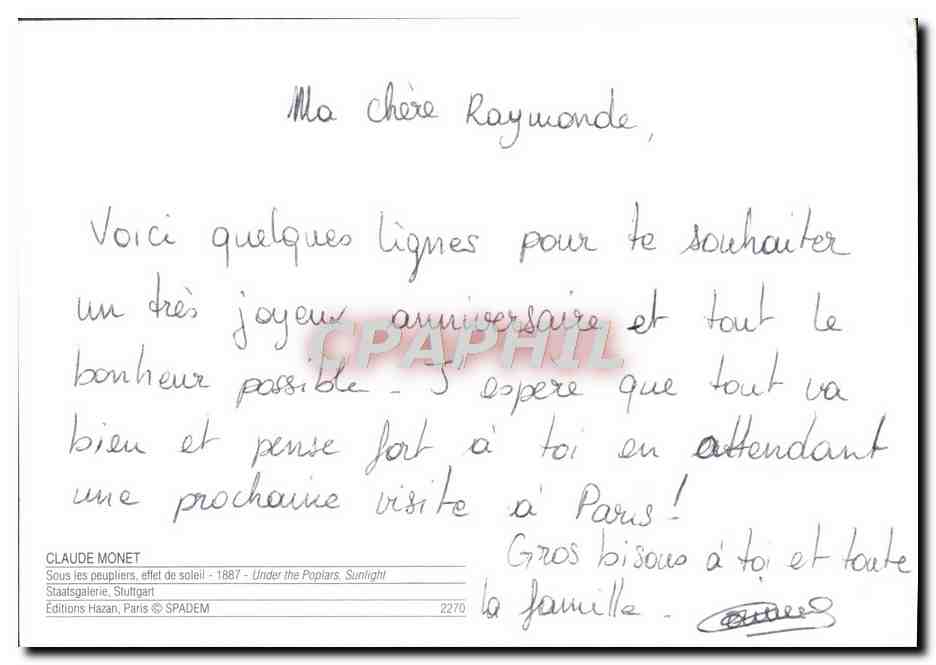 Ma chère Raymonde,
Voici quelques lignes pour te souhaiter
un très joyeux anniversaire et tout le
bonheur possible - J'espère que tout va
bien et pense fort à toi en attendant
une prochaine visite à Paris !
Gros bisous à toi et toute
la famille -
CPAPHIL
CLAUDE MONET
Sous les peupliers, effet de soleil - 1887 - Under the Poplars. Sunlight
Staatsgalerie, Stuttgart
Éditions Hazan, Paris © SPADEM 2270